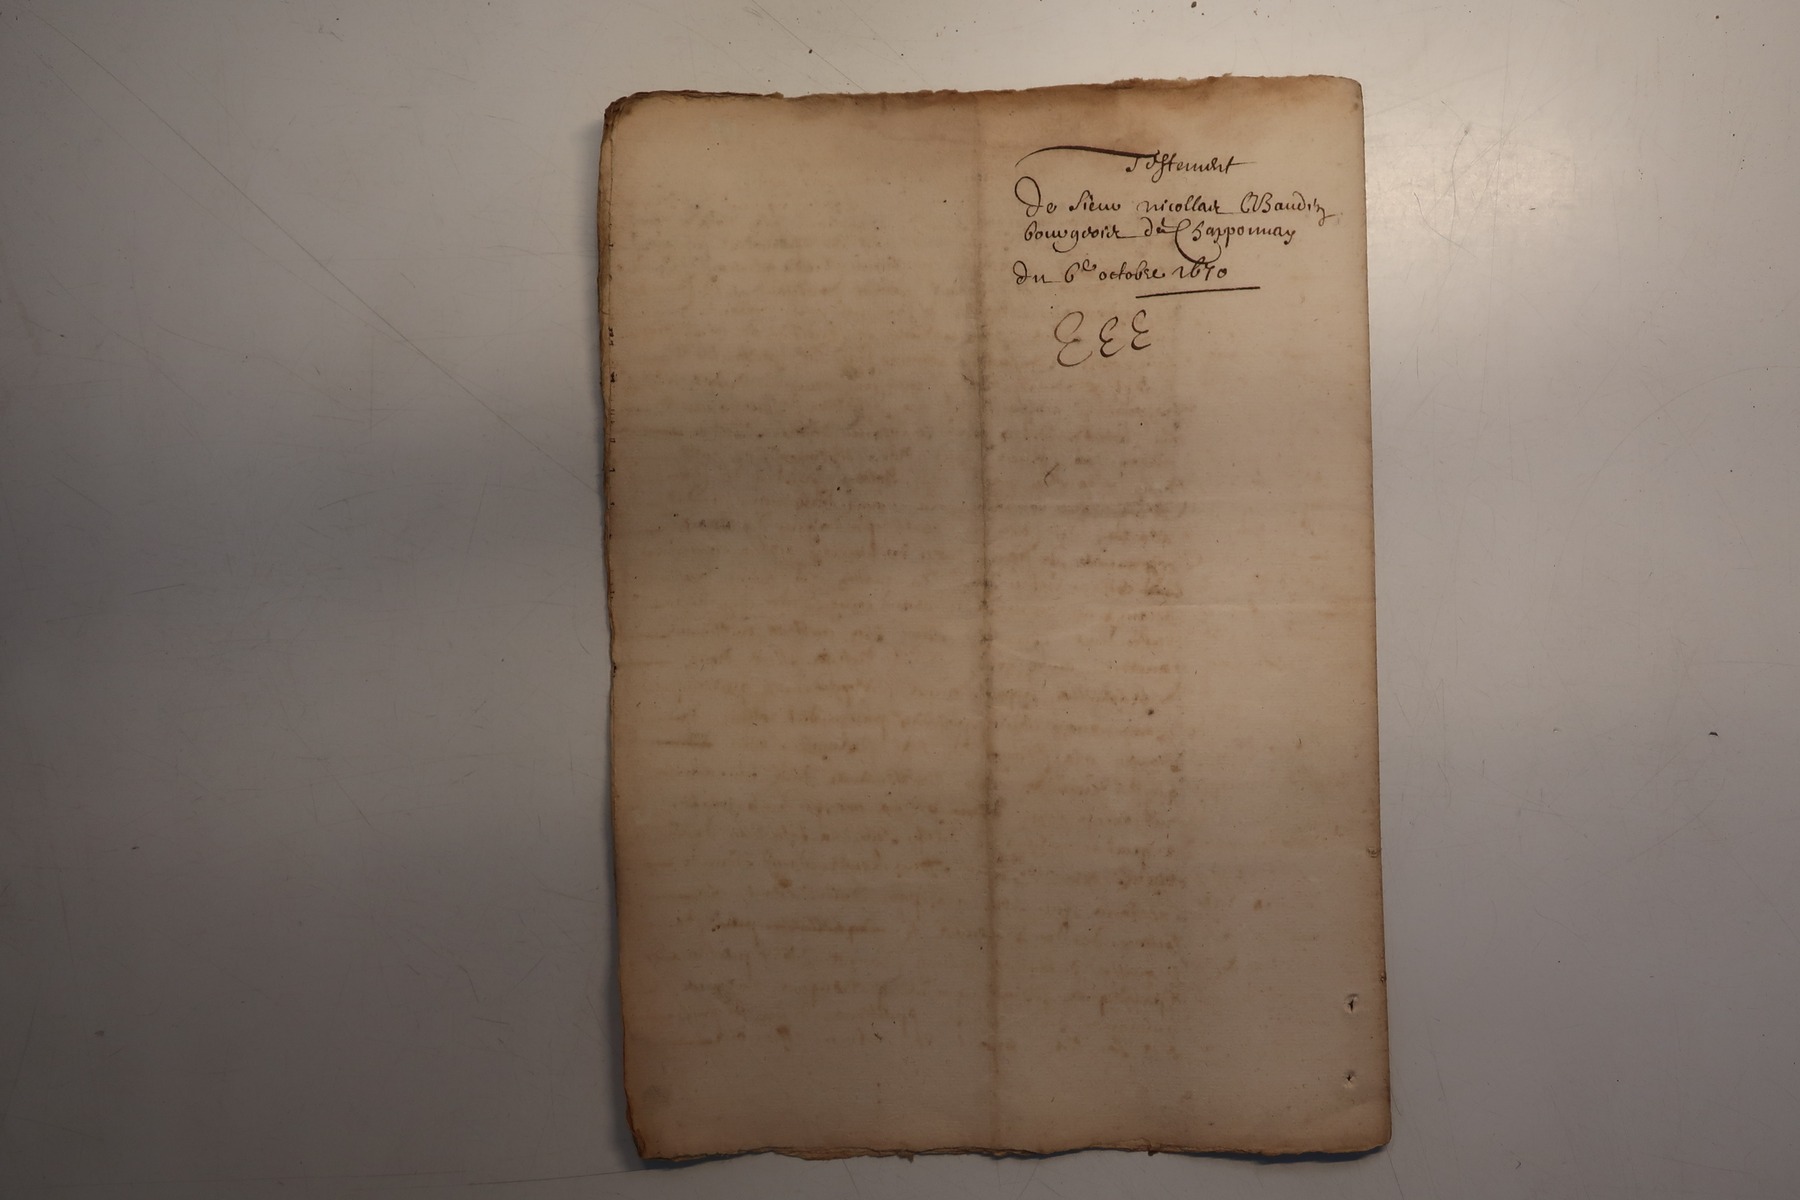 Testement
De sieur nicollas Baudin
bourgeois de Chapponnay
du 6e octobre 1670
EEE